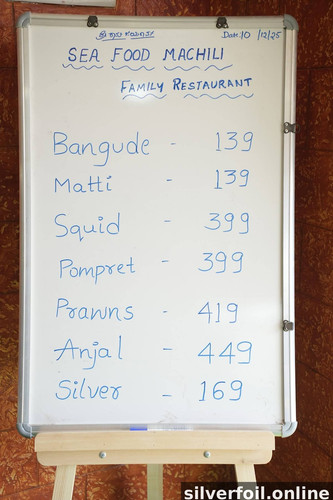 Date:10/12/25
SEA FOOD MACHILI
FAMILY RESTAURANT
Bangude - 139
Matti - 139
Squid - 399
Pompret - 399
Prawns - 419
Anjal - 449
Silver - 169
silverfoil.online